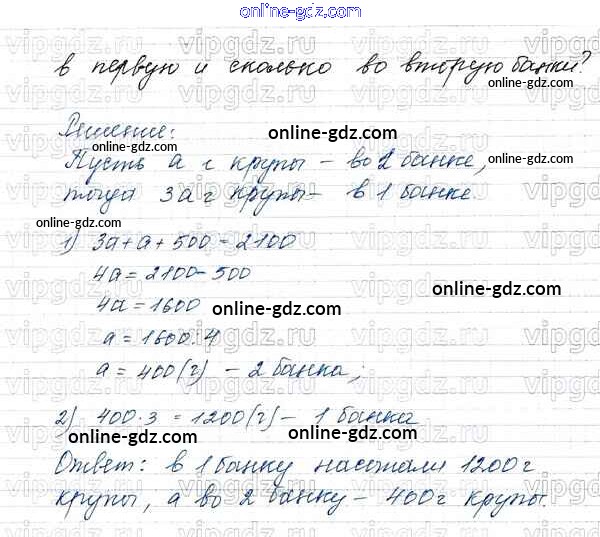 online-gdz.com
в первую и сколько во вторую банки?
online-gdz.com
Решение:
online-gdz.com
Пусть а г крупы – во 2 банке,
online-gdz.com
тогда 3а г крупы – в 1 банке.
online-gdz.com
online-gdz.com
1) 3а + а + 500 = 2100
4а = 2100 – 500
online-gdz.com
4а = 1600
online-gdz.com
а = 1600 : 4
а = 400 (г) – 2 банка;
online-gdz.com
2) 400 · 3 = 1200 (г) – 1 банка
online-gdz.com
online-gdz.com
Ответ: в 1 банку насыпали 1200 г
крупы, а во 2 банку – 400 г крупы.
online-gdz.com
vipgdz.com